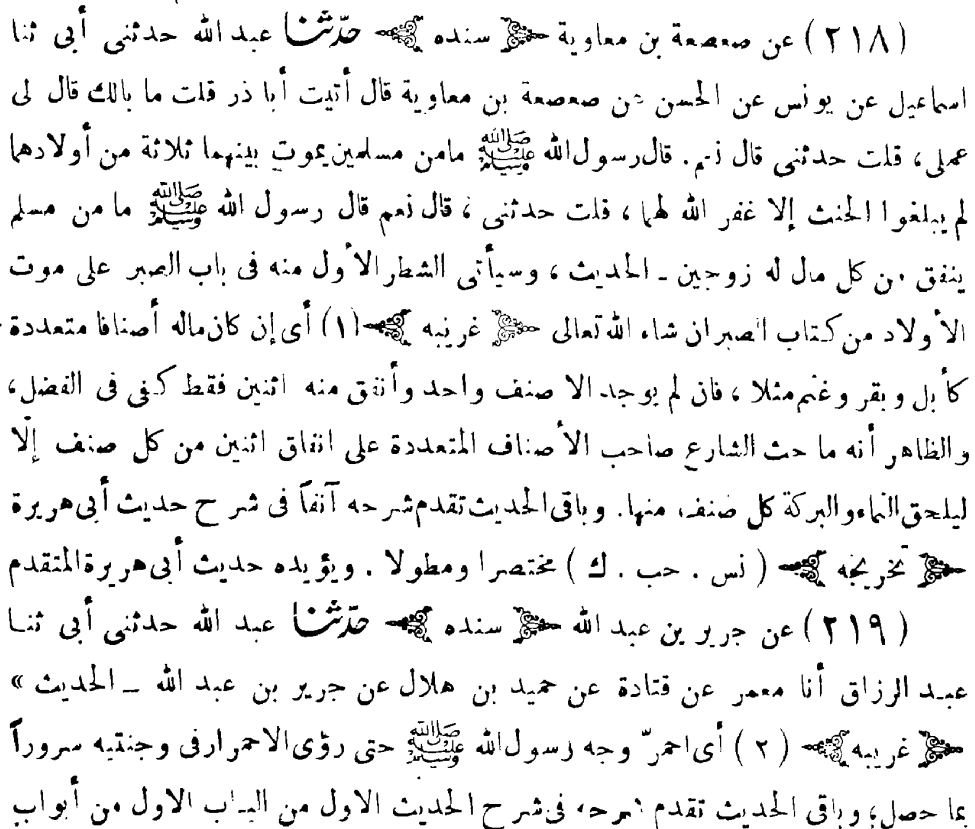 (٢١٨) عن صعصعة بن معاوية ﴿ سنده ﴾ حدّثنا عبد الله حدثنى أبى ثنا
اسماعيل عن يونس عن الحسن عن صعصعة بن معاوية قال أتيت أبا ذر قلت ما بالك قال لى
عملى، قلت حدثنى قال نعم. قال رسول الله ﷺ مامن مسلمين يموت بينهما ثلاثة من أولادهما
لم يبلغوا الحنث إلا غفر الله لهما، قلت حدثنى، قال نعم قال رسول الله ﷺ ما من مسلم
ينفق من كل مال له زوجين ـ الحديث، وسيأتى الشطر الأول منه فى باب الصبر على موت
الأولاد من كتاب الصبر ان شاء الله تعالى ﴿ غريبه ﴾ (١) أى إن كان ماله أصنافا متعددة
كأبل وبقر وغنم مثلا، فان لم يوجد الا صنف واحد وأنفق منه اثنين فقط كفى فى الفضل،
والظاهر أنه ما حث الشارع صاحب الأصناف المتعددة على انفاق اثنين من كل صنف إلّا
ليلحق النماء والبركة كل صنف منها. وباقى الحديث تقدم شرحه آنفاً فى شرح حديث أبى هريرة
﴿ تخريجه ﴾ (نس. حب. ك) مختصرا ومطولا. ويؤيده حديث أبى هريرة المتقدم
(٢١٩) عن جرير بن عبد الله ﴿ سنده ﴾ حدّثنا عبد الله حدثنى أبى ثنا
عبد الرزاق أنا معمر عن قتادة عن حميد بن هلال عن جرير بن عبد الله ـ الحديث »
﴿ غريبه ﴾ (٢) أى احمرّ وجه رسول الله ﷺ حتى رؤى الاحمرار فى وجنتيه سروراً
بما حصل؛ وباقى الحديث تقدم شرحه فى شرح الحديث الاول من الباب الاول من أبواب